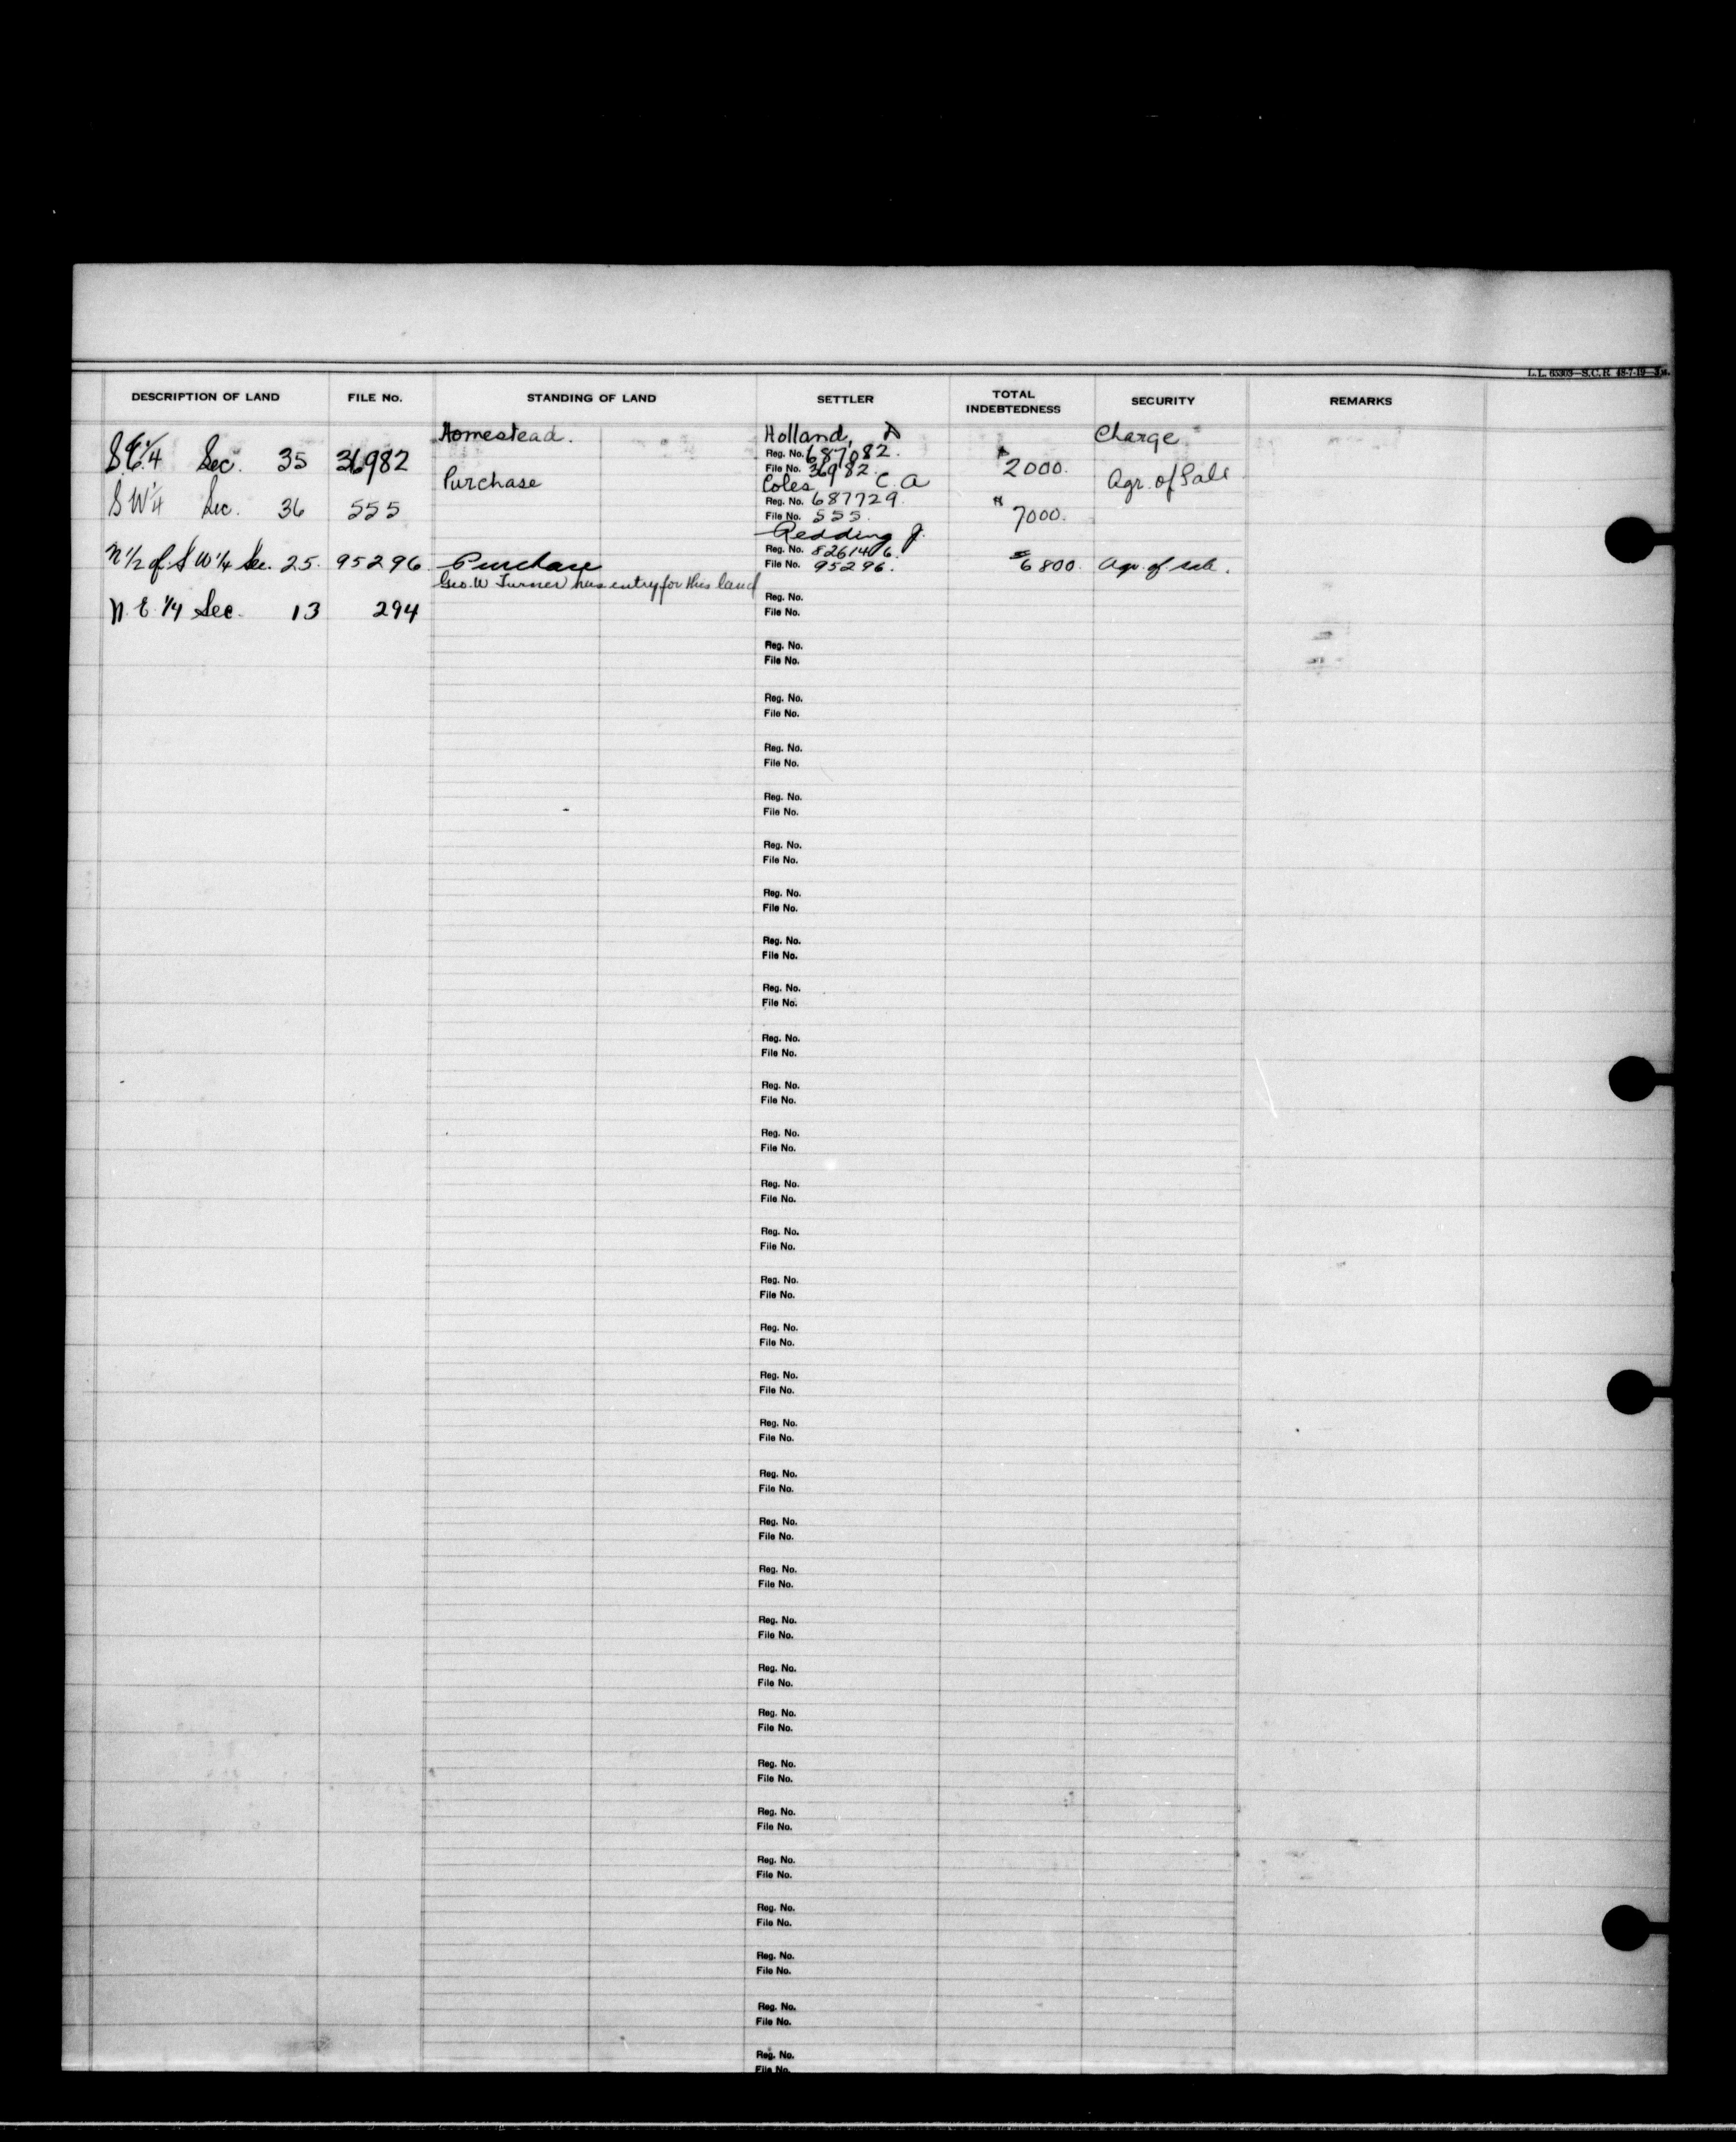 L.L. 65303—S.C.R. 48-7-19—3M.
DESCRIPTION OF LAND FILE No. STANDING OF LAND SETTLER TOTAL INDEBTEDNESS SECURITY REMARKS
Homestead. Holland, D Charge
S.E.¼ Sec. 35 36982 Reg. No. 687082. $2000.
File No. 36982.
Purchase Coles C.A Agr. of Sale
SW¼ Sec. 36 555 Reg. No. 687729. $7000.
File No. 555.
Redding J.
Reg. No. 826140 6.
N½ of SW¼ Sec. 25. 95296 Purchase File No. 95296. $6800. Agr. of sale.
Geo. W Turner has entry for this land
Reg. No.
N.E.¼ Sec. 13 294 File No.
Reg. No.
File No.
Reg. No.
File No.
Reg. No.
File No.
Reg. No.
File No.
Reg. No.
File No.
Reg. No.
File No.
Reg. No.
File No.
Reg. No.
File No.
Reg. No.
File No.
Reg. No.
File No.
Reg. No.
File No.
Reg. No.
File No.
Reg. No.
File No.
Reg. No.
File No.
Reg. No.
File No.
Reg. No.
File No.
Reg. No.
File No.
Reg. No.
File No.
Reg. No.
File No.
Reg. No.
File No.
Reg. No.
File No.
Reg. No.
File No.
Reg. No.
File No.
Reg. No.
File No.
Reg. No.
File No.
Reg. No.
File No.
Reg. No.
File No.
Reg. No.
File No.
Reg. No.
File No.
Reg. No.
File No.